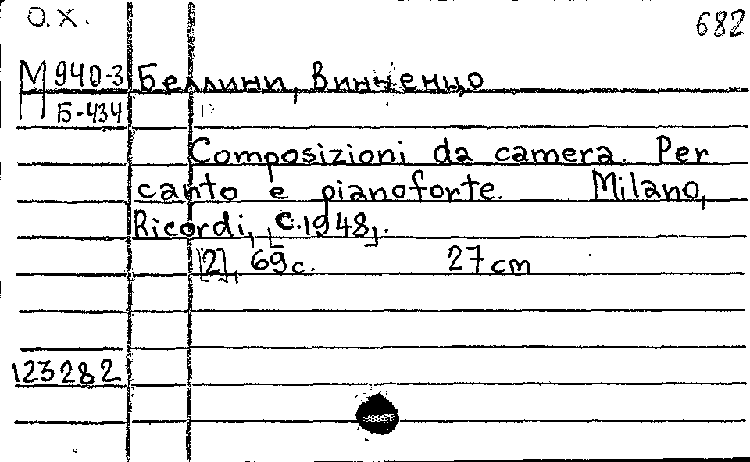 О.Х.
682
М 940-3 Беллини, Винченцо
Б-434
Composizioni da camera. Per
canto e pianoforte. Milano,
Ricordi, [c.1948].
[2], 69 с. 27 cm
123282